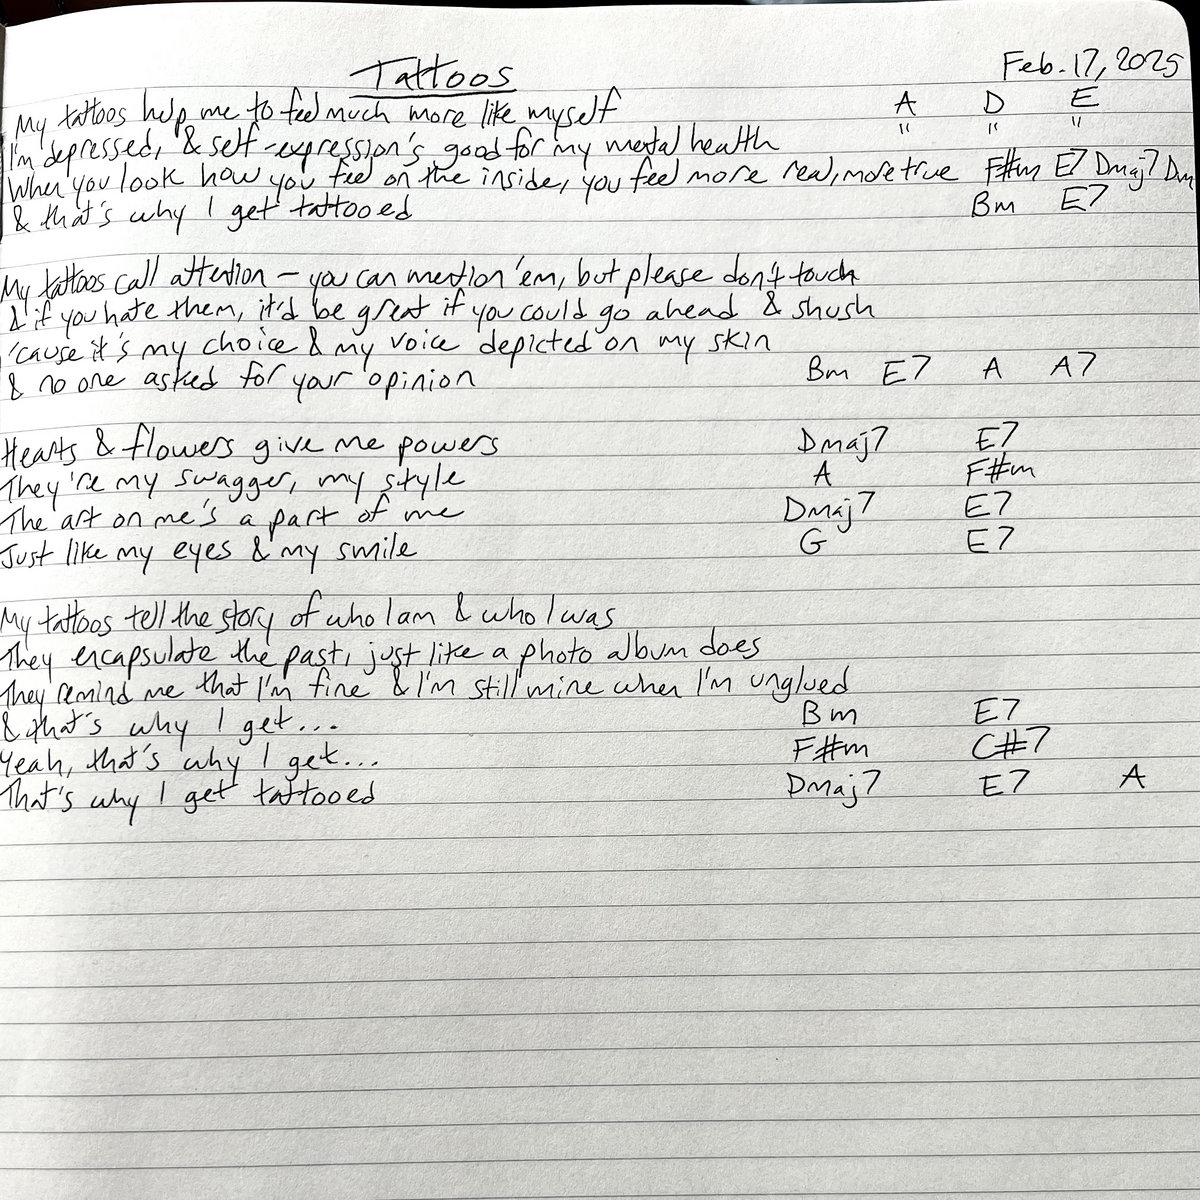 Tattoos Feb. 17, 2025
My tattoos help me to feel much more like myself A D E
I'm depressed, & self-expression's good for my mental health " " "
When you look how you feel on the inside, you feel more real, more true F#m E7 Dmaj7 Dm
& that's why I get tattooed Bm E7
My tattoos call attention – you can mention 'em, but please don't touch
& if you hate them, it'd be great if you could go ahead & shush
'cause it's my choice & my voice depicted on my skin
& no one asked for your opinion Bm E7 A A7
Hearts & flowers give me powers Dmaj7 E7
They're my swagger, my style A F#m
The art on me's a part of me Dmaj7 E7
Just like my eyes & my smile G E7
My tattoos tell the story of who I am & who I was
They encapsulate the past, just like a photo album does
They remind me that I'm fine & I'm still mine when I'm unglued
& that's why I get... Bm E7
Yeah, that's why I get... F#m C#7
That's why I get tattooed Dmaj7 E7 A